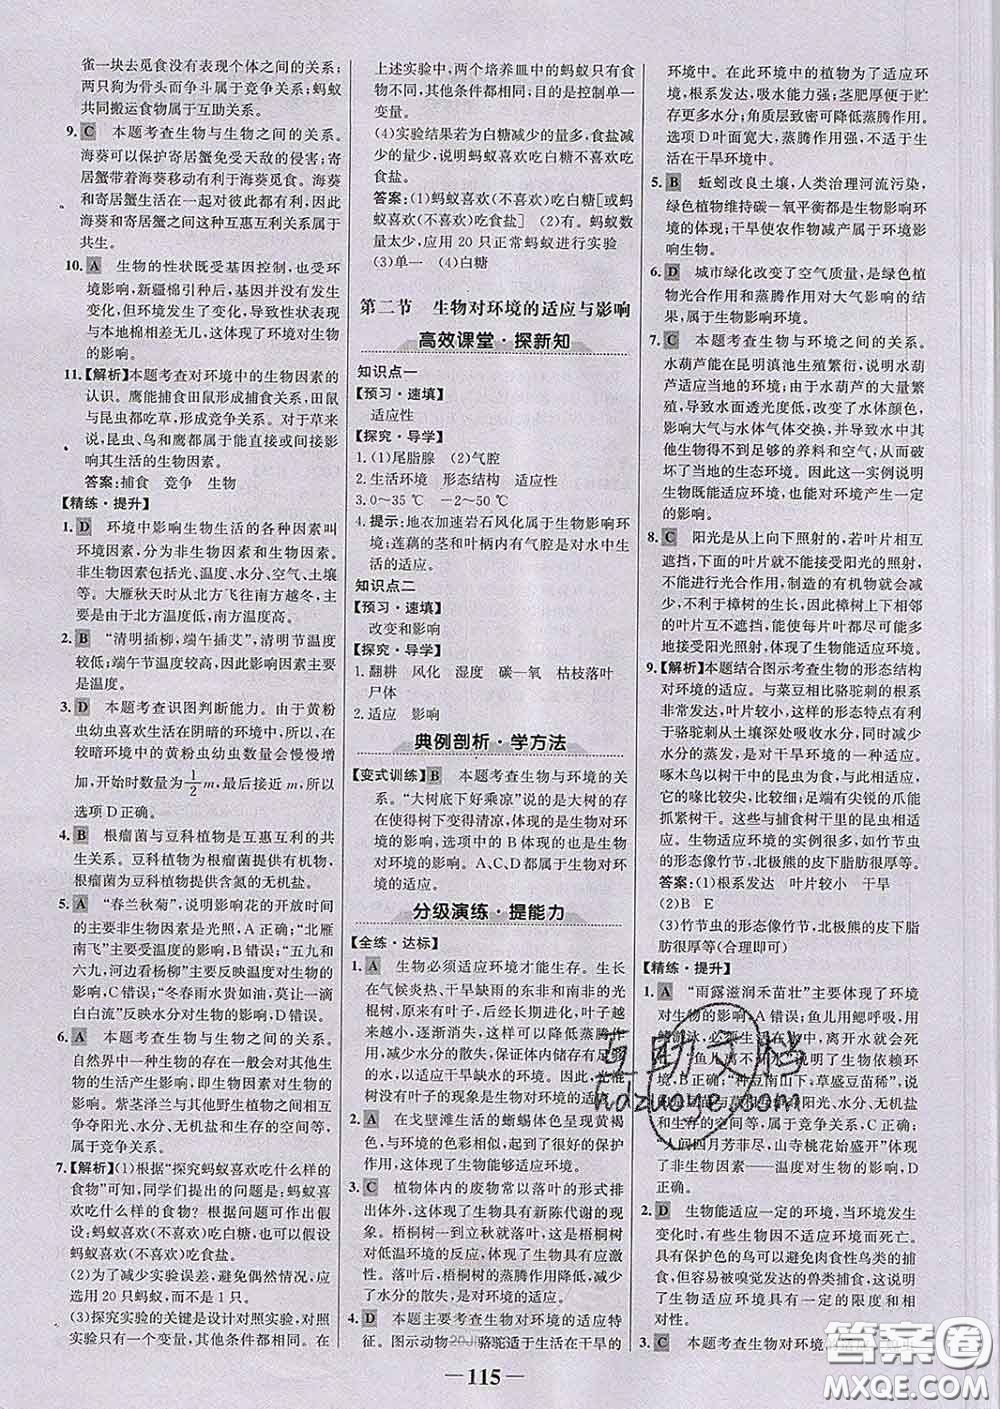 雀一块去觅食没有表现个体之间的关系;
两只狗为骨头而争斗属于竞争关系;蚂蚁
共同搬运食物属于互助关系。
9. C 本题考查生物与生物之间的关系。
海葵可以保护寄居蟹免受天敌的侵害;寄
居蟹带着海葵移动有利于海葵觅食。海葵
和寄居蟹生活在一起对彼此都有利,因此
海葵和寄居蟹之间的互惠互利关系属于
共生。
10. A 生物的性状既受基因控制,也受环
境的影响,新疆棉引种后,基因并没有发生
变化,但环境发生了变化,导致性状表现与
本地棉相差无几,这体现了环境对生物
的影响。
11.【解析】本题考查对环境中的生物因素的
认识。鹰能捕食田鼠形成捕食关系,田鼠
与昆虫都吃草,形成竞争关系。对于草来
说,昆虫、鸟和鹰都属于能直接或间接影
响其生活的生物因素。
答案:捕食 竞争 生物
【精练·提升】
1. D 环境中影响生物生活的各种因素叫
环境因素,分为非生物因素和生物因素。
非生物因素包括光、温度、水分、空气、土壤
等。大雁秋天时从北方飞往南方越冬,主
要是由于北方温度低,南方温度高。
2. B “清明插柳,端午插艾”,清明节温度
较低;端午节温度较高,因此影响因素主要
是温度。
3. D 本题考查识图判断能力。由于黄粉
虫幼虫喜欢生活在阴暗的环境中,所以在
较暗环境中的黄粉虫幼虫数量会慢慢增
加,开始时数量为1/2m,最后接近m,所以
选项D正确。
4. B 根瘤菌与豆科植物是互惠互利的共
生关系。豆科植物为根瘤菌提供有机物,
根瘤菌为豆科植物提供含氮的无机盐。
5. A “春兰秋菊”,说明影响花的开放时间
的主要非生物因素是光,A正确;“北雁
南飞”主要受温度的影响,B错误;“五九和
六九,河边看杨柳”主要反映温度对生物的
影响,C错误;“冬春雨水贵如油,莫让一滴
白白流”反映水分对生物的影响,D错误。
6. A 本题考查生物与生物之间的关系。
自然界中一种生物的存在一般会对其他生
物的生活产生影响,即生物因素对生物的
影响。紫茎泽兰与其他野生植物之间相互
争夺阳光、水分、无机盐和生存的空间等,
属于竞争关系。
7.【解析】(1)根据“探究蚂蚁喜欢吃什么样的
食物”可知,同学们提出的问题是:蚂蚁喜
欢吃什么样的食物?根据问题可作出假
设:蚂蚁喜欢(不喜欢)吃白糖,也可以是蚂
蚁喜欢(不喜欢)吃食盐。
(2)为了减少实验误差,避免偶然情况,应
选用20只蚂蚁,而不是1只。
(3)探究实验的关键是设计对照实验,对照
实验只有一个变量,其他条件都相同。在
上述实验中,两个培养皿中的蚂蚁只有食
物不同,其他条件都相同,目的是控制单一
变量。
(4)实验结果为白糖减少的量多,食盐减少
的量少,说明蚂蚁喜欢吃白糖不喜欢吃
食盐。
答案:(1)蚂蚁喜欢(不喜欢)吃白糖[或蚂
蚁喜欢(不喜欢)吃食盐] (2)有。蚂蚁数
量太少,应用20只正常蚂蚁进行实验
(3)单一 (4)白糖
第二节 生物对环境的适应与影响
高效课堂·探新知
知识点一
【预习·速填】
适应性
【探究·导学】
1.(1)尾脂腺 (2)气腔
2.生活环境 形态结构 适应性
3.0~35 ℃ -2~50 ℃
4.提示:地衣加速岩石风化属于生物影响环
境;莲藕的茎和叶柄内有气腔是对水中生
活的适应。
知识点二
【预习·速填】
改变和影响
【探究·导学】
1.翻耕 风化 湿度 碳—氧 枯枝落叶
尸体
2.适应 影响
典例剖析·学方法
【变式训练】B 本题考查生物与环境的关
系。“大树底下好乘凉”说的是大树的存
在使得树下变得清凉,体现的是生物对环
境的影响,选项中的B体现的也是生物
对环境的影响。A、C、D都属于生物对环
境的适应。
分级演练·提能力
【全练·达标】
1. A 生物必须适应环境才能生存。生长
在气候炎热、干旱缺雨的东非和南非的光
棍树,原有叶子,后经长期进化,叶子越来
越小,逐渐消失,可有效地减少蒸腾作
用,减少水分的散失,保证体内储存有足够
的水分以适应环境,以免因缺水而导致死
亡,这体现了生物对环境的适应。
2. A 在戈壁滩生活的蜥蜴体色呈现黄褐
色,与环境的色彩相似,起到了很好的保护
作用,这体现了生物能够适应环境。
3. C 植物体内的废物常以落叶的形式排
出体外,这体现了生物具有新陈代谢的现
象。梧桐树一到立秋就落叶,这是梧桐树
对低温环境的反应,体现了生物适应环境。
落叶后,梧桐树的蒸腾作用减弱,减少水分
的散失,是对环境的适应。
4. D 本题主要考查生物对环境的适应特
征。图示动物骆驼适于生活在干旱的
环境中。在此环境中的植物为了适应环
境,根系发达,吸水能力强;茎肥厚,贮存大
量水分;角质层较厚,降低蒸腾作用。
选项D叶面宽大,蒸腾作用强,不适于生
活在干旱环境中。
5. B 蚯蚓改良土壤,人类治理河流污染,
绿色植物维持碳—氧平衡都是生物影响环
境的情况;干旱使农作物减产属于环境影
响生物。
6. D 城市绿化改变了空气质量,是绿色植
物光合作用和蒸腾作用对环境影响的结
果,属于生物影响环境。
7. C 本题考查生物与环境之间的关系。
水葫芦能在昆明滇池生殖繁衍,说明水葫
芦适应当地的环境;水葫芦的大量繁
殖,导致水面透光度低,改变了水体颜色,
影响大气与水体气体交换,并导致其他水
生生物得不到充足的光和营养而死亡,从而
破坏了当地的生态环境。因此这一实例说明
生物既能适应环境,也能对环境产生一定
的影响。
8. C 阳光是从上向下照射的,若叶片相互
遮挡,下面的叶片就不能接受阳光的照射,
不能进行光合作用,制造的有机物就会减
少,不利于樟树的生长,因此樟树上下相邻
的叶片互不遮挡,均匀分布,每片叶子都能
接受阳光照射,体现了生物能适应环境。
9.【解析】本题结合图示考查生物的形态结构
对环境的适应。与菜豆相比骆驼刺的根系
非常发达,叶片较小,这些形态特点有利
于骆驼刺从土壤深处吸收水分,减少体内
水分的蒸发,是对干旱环境的一种适应。
啄木鸟以树干中的昆虫为食,与此相适应
的喙比较尖,舌比较长;足端有尖锐的爪能
抓紧树干。这些与捕食树干里的昆虫相适
应。生物适应环境的实例很多,如竹节虫
的形态像竹节,北极熊的皮下脂肪很厚等。
答案:(1)根系发达 叶片较小 干旱
(2)B E
(3)竹节虫的形态像竹节,北极熊的皮下脂
肪很厚等(合理即可)
【精练·提升】
1. A “雨露滋润禾苗壮”主要体现了环境
对生物的影响,A错误;鱼儿用鳃呼吸,用
鳍游泳,必须生活在水中,离开水就会死
亡,“鱼儿离不开水”说明了生物依赖环
境,B正确;“种豆南山下,草盛豆苗稀”,说
的是草和豆苗之间相互争夺阳光、无机盐
和生存的空间等,属于竞争关系,C正确;
“人间四月芳菲尽,山寺桃花始盛开”体现
了非生物因素——温度对生物的影响,D
正确。
2. D 生物能适应一定的环境,当环境发生
变化时,有些生物因不适应环境而死亡。
具有保护色的鸟可以避免肉食性鸟类的捕
食,但容易被嗅觉发达的兽类捕食,这说明
生物适应环境具有一定的限度和相对
性。
3. C 本题考查生物对环境
— 115 —
互助文档
hdzuoye.com
答案圈
MXQE.COM